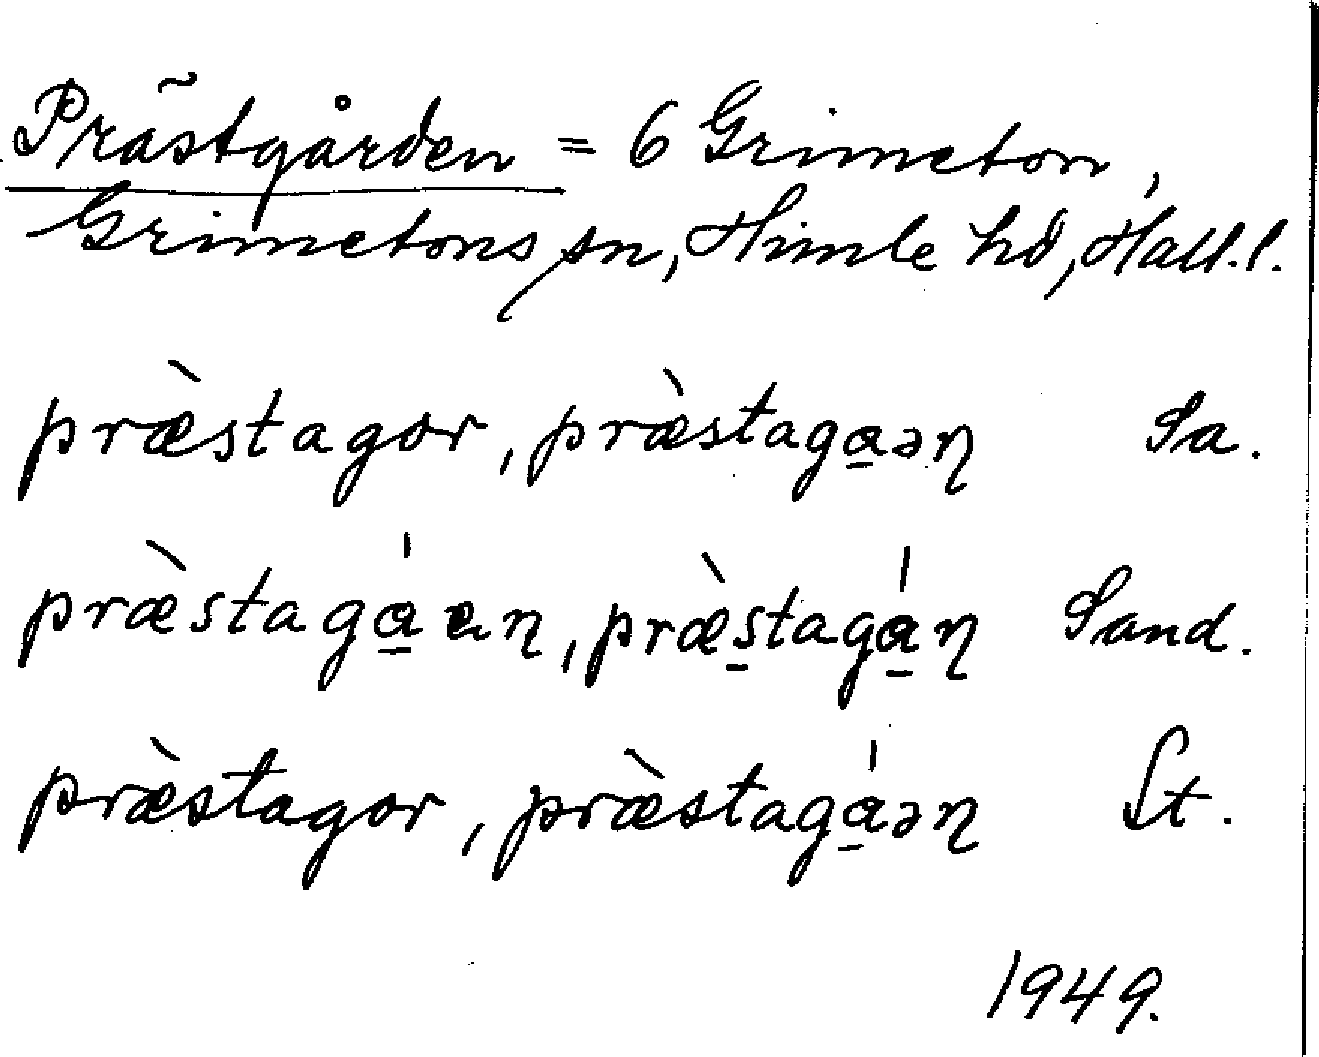 Prästgården = 6 Grimeton,
Grimetons sn, Himle hd, Hall.l.
præ̀stagor, præ̀staga̱əꞃ Sa.
præ̀stagá̱aꞃ, præ̀s̱tagá̱ꞃ Sand.
præ̀stagor, præ̀stagá̱əꞃ St.
1949.